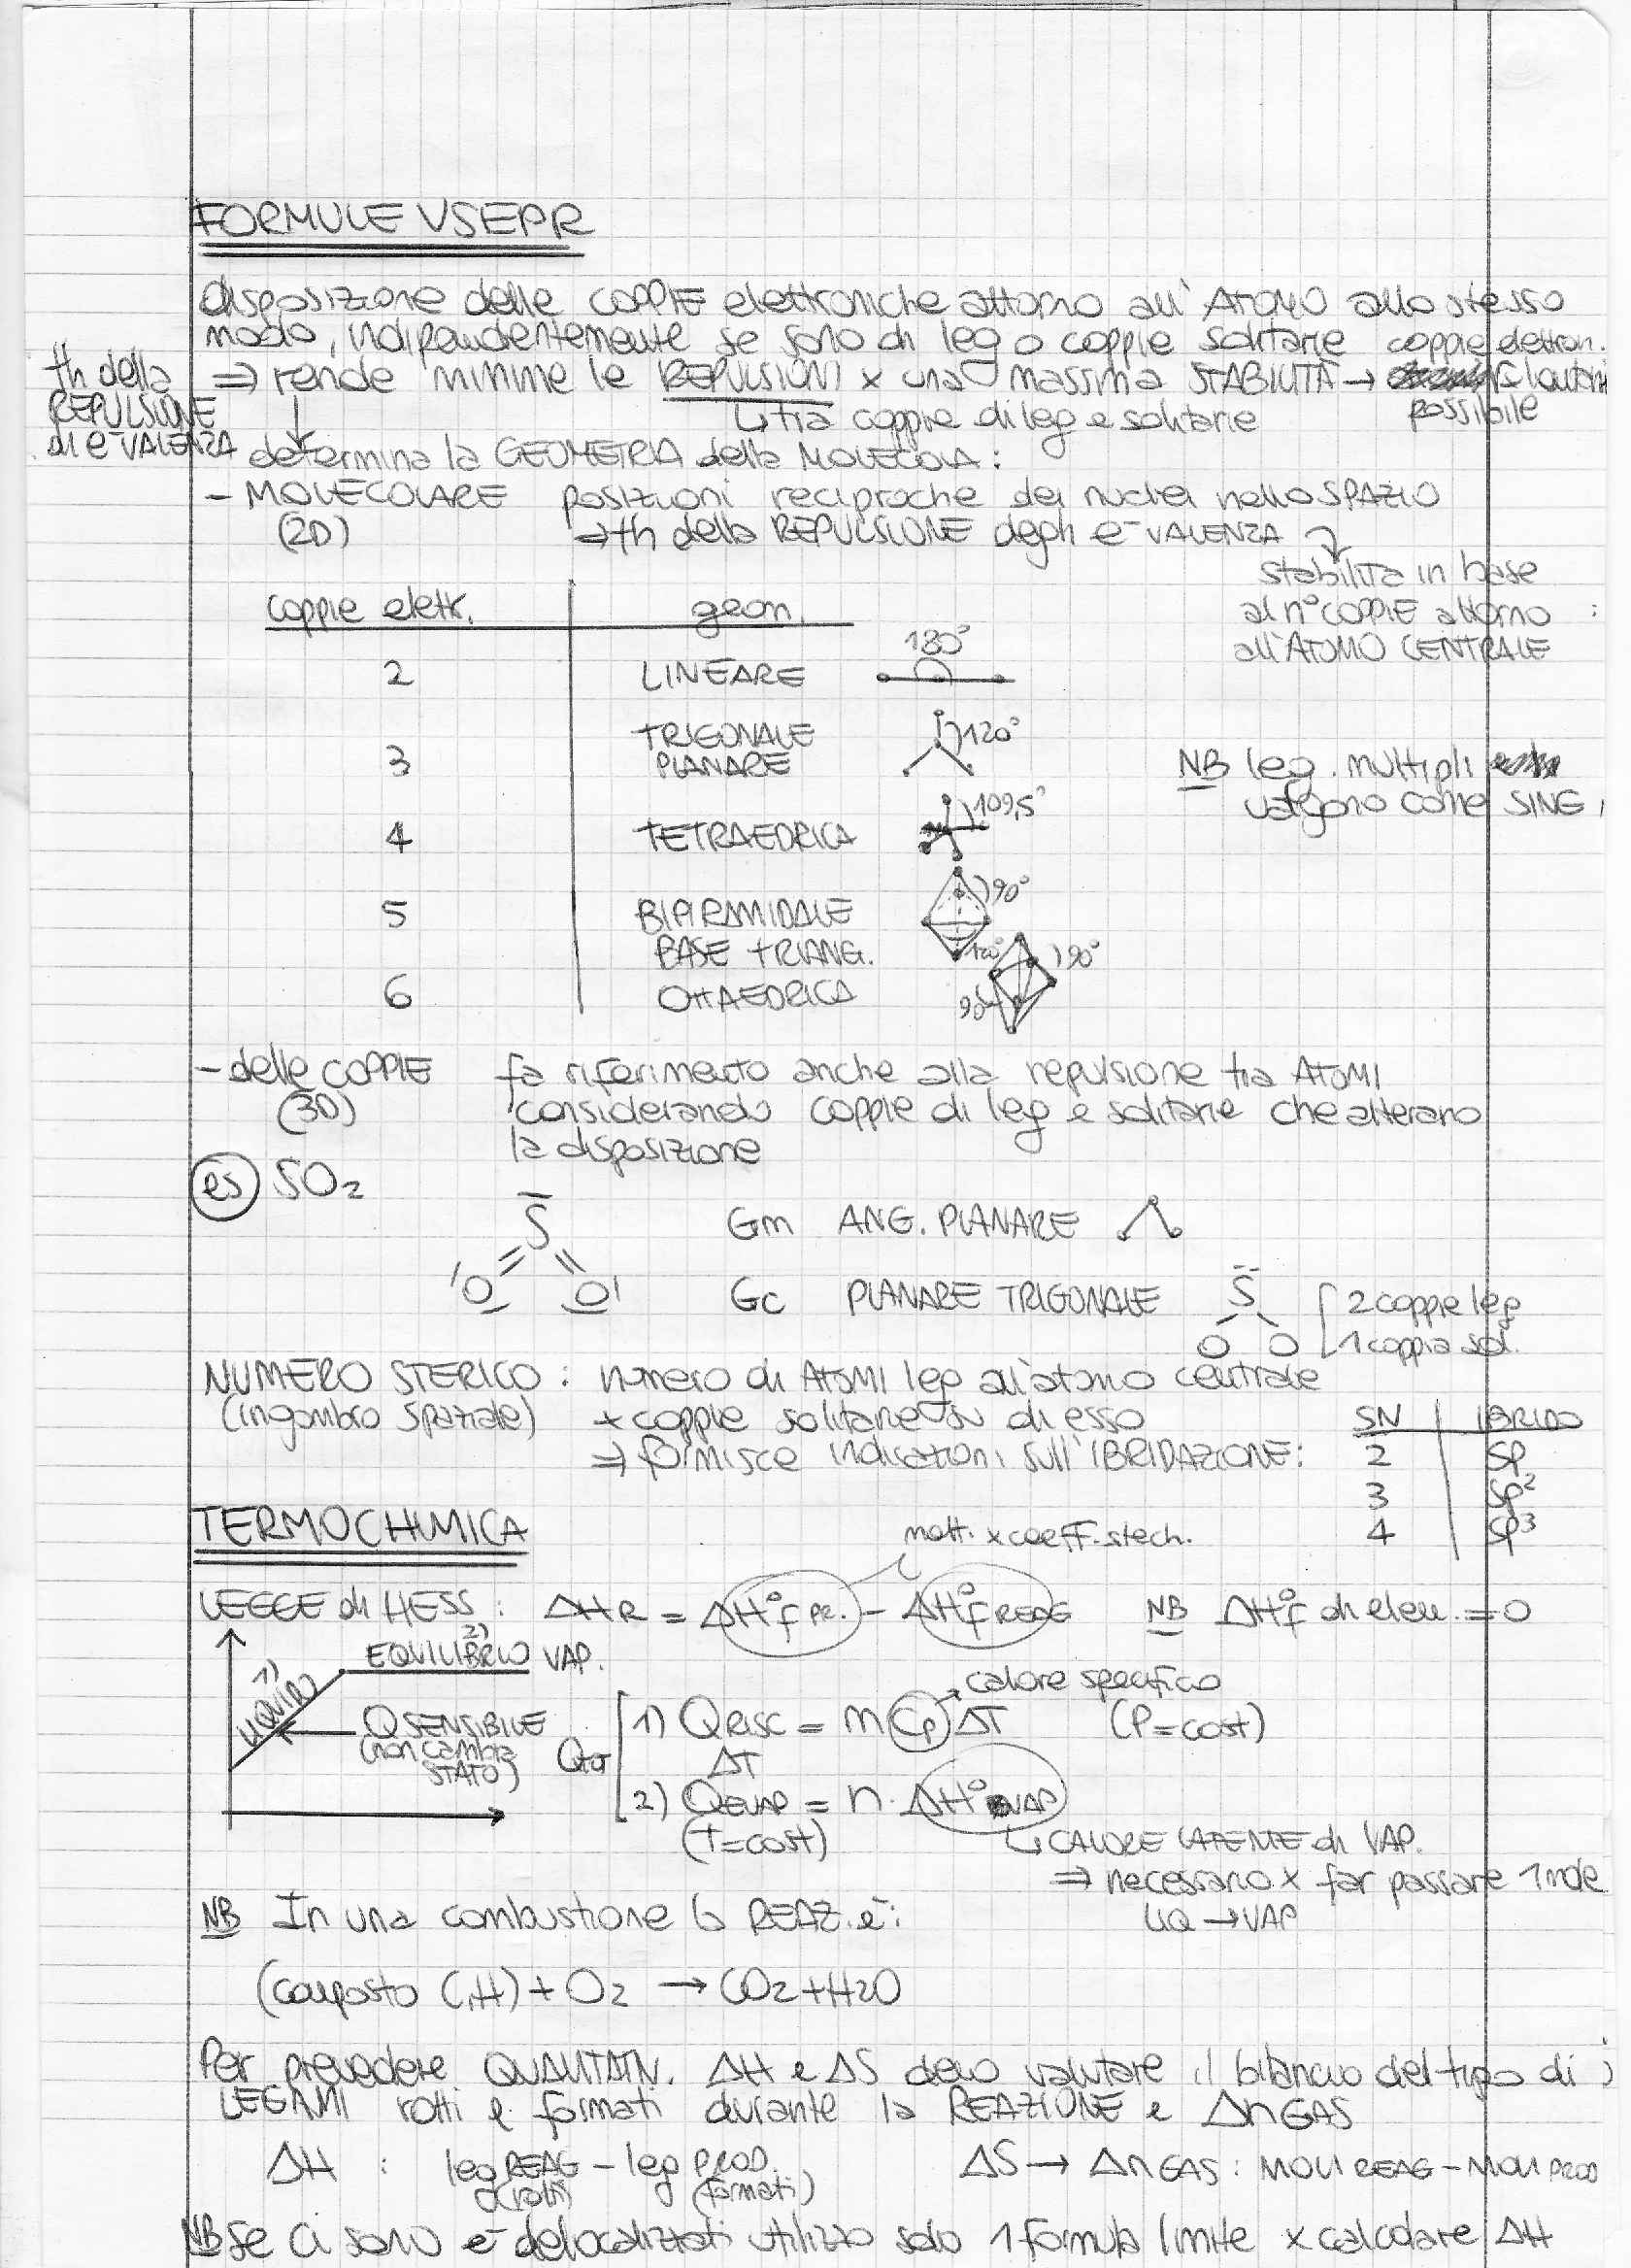 FORMULE VSEPR
disposizione delle COPPIE elettroniche attorno all'ATOMO allo stesso
modo, indipendentemente se sono di leg o coppie solitarie
coppie elettron.
th della
REPULSIONE
di e⁻ VALENZA
⇒ rende minime le REPULSIONI x una massima STABILITÀ →
possibile
↳ tra coppie di leg e solitarie
determina la GEOMETRIA della MOLECOLA:
- MOLECOLARE posizioni reciproche dei nuclei nello SPAZIO
(2D) ⇒ th della REPULSIONE degli e⁻ VALENZA
stabilita in base
al n° COPPIE attorno :
all'ATOMO CENTRALE
coppie elett. geom.
2 LINEARE 180°
3 TRIGONALE PLANARE 120°
NB leg. multipli
valgono come SING.
4 TETRAEDRICA 109,5°
5 BIPIRAMIDALE 90°
BASE TRIANG. 120°
6 OTTAEDRICA 90° 90°
- delle COPPIE fa riferimento anche alla repulsione tra ATOMI
(3D) considerando coppie di leg e solitarie che alterano
la disposizione
es) SO₂
S Gm ANG. PLANARE
O O Gc PLANARE TRIGONALE S
O O
2 coppie leg
1 coppia sol.
NUMERO STERICO : numero di ATOMI leg all'atomo centrale
(ingombro spaziale) + coppie solitarie su di esso
⇒ fornisce indicazioni sull'IBRIDAZIONE:
SN IBRIDO
2 sp
3 sp²
4 sp³
TERMOCHIMICA
molt. x coeff. stech.
LEGGE di HESS : ΔHR = ΔH°f PR. - ΔH°f REAG NB ΔH°f di elem. = 0
1) LIQUIDO
2) EQUILIBRIO VAP.
Q SENSIBILE
(non cambia
STATO)
calore specifico
1) Q RISC = m Cp ΔT (P=cost)
ΔT
2) Q EVAP = n · ΔH° VAP
(T=cost)
↳ CALORE LATENTE di VAP.
⇒ necessario x far passare 1 mole
LIQ → VAP
NB In una combustione la REAZ. è:
(composto C,H) + O₂ → CO₂ + H₂O
Per prevedere QUALITATIV. ΔH e ΔS devo valutare il bilancio del tipo di
LEGAMI rotti e formati durante la REAZIONE e Δn GAS
ΔH : leg REAG - leg PROD. ΔS → Δn GAS : MOLI REAG - MOLI PROD
(rotti) (formati)
NB Se ci sono e⁻ delocalizzati utilizzo solo 1 formula limite x calcolare ΔH